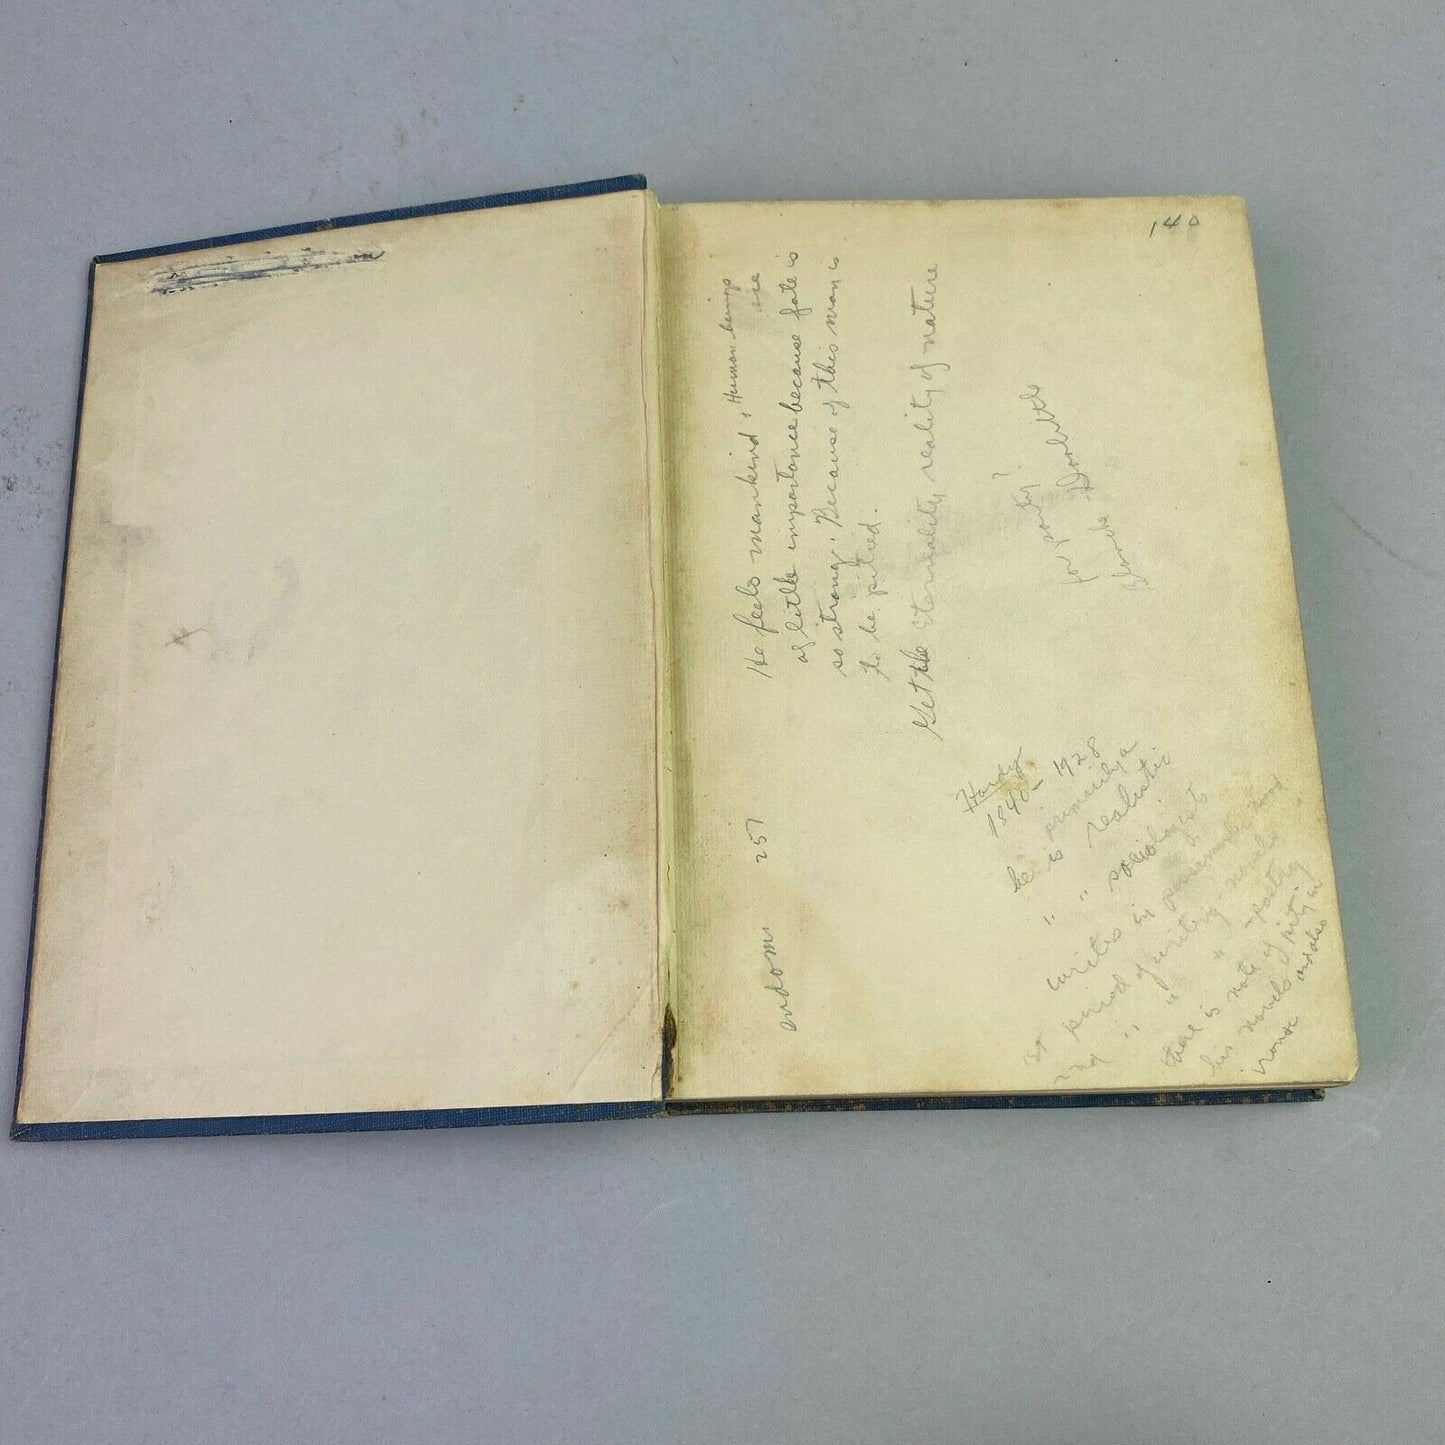 140
He feels mankind, Human beings are
of little importance because fate is
so strong. Because of this man is
to be pitied.
Get the Eternality, reality of nature
for party?
Doolittle
257
Hardy
1840 - 1928
he is primarily a
" " realistic
sociologist
writes in pessimistic mood
1st period of writing - novels
2nd " " " - poetry
there is note of pity in
his novels and also
ironic